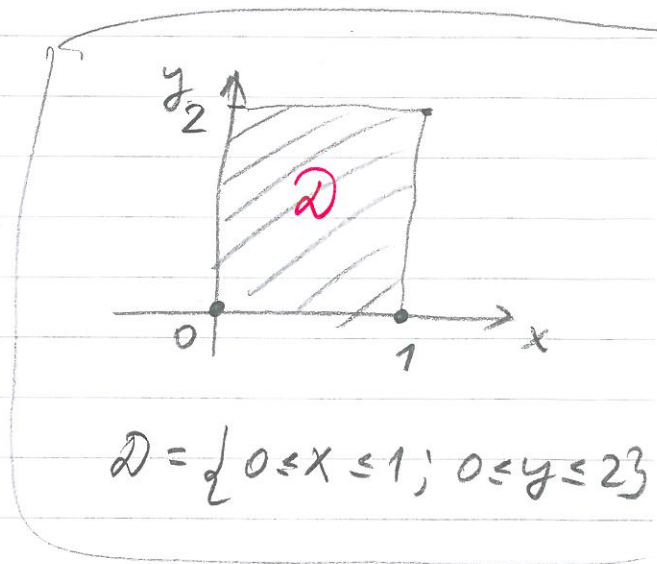 y
2
D
0
1
x
D = { 0 ≤ x ≤ 1; 0 ≤ y ≤ 2}